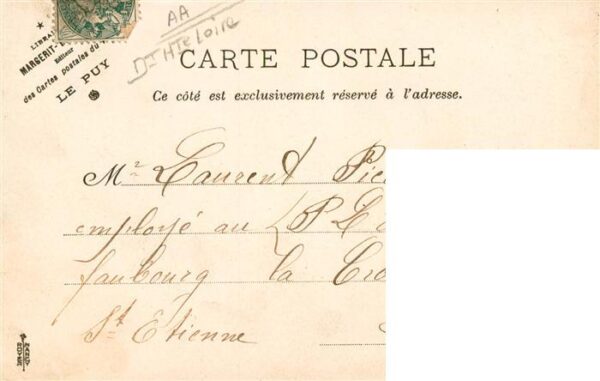 LIBRAI
MARGERIT-
Éditeur
des Cartes postales du
LE PUY
AA
Dt Hte Loire
CARTE POSTALE
Ce côté est exclusivement réservé à l'adresse.
Mr Laurent Pie
employé au P L
faubourg la Cro
St Etienne